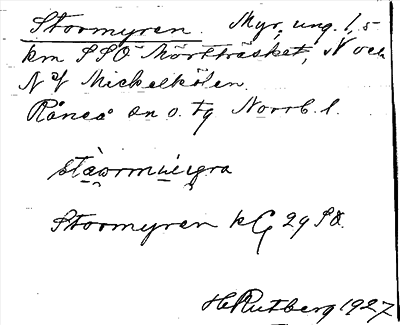 Stormyren. Myr, ung. 1,5
km SSO Mörtträsket, N och
N of Mickelkölen.
Råneå sn o. tg Norrb. l.
Stormyren kG 29 SO.
H Rutberg 1927